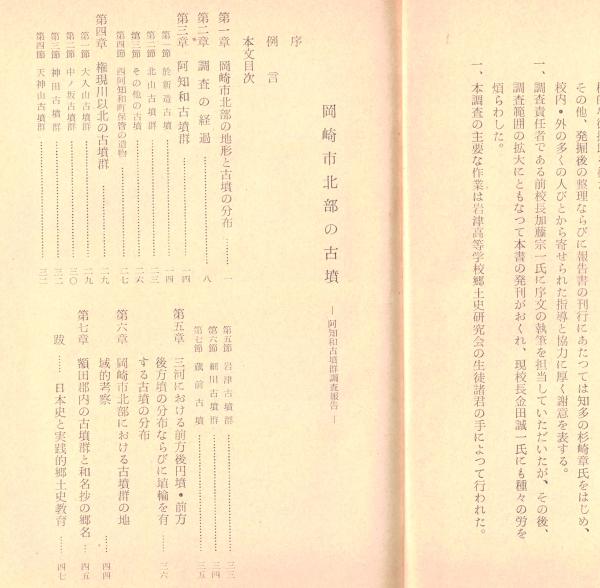 その他、発掘後の整理ならびに報告書の刊行にあたつては知多の杉崎章氏をはじめ、
校内・外の多くの人びとから寄せられた指導と協力に厚く謝意を表する。
一、調査責任者である前校長加藤宗一氏に序文の執筆を担当していただいたが、その後、
調査範囲の拡大にともなつて本書の発刊がおくれ、現校長金田誠一氏にも種々の労を
煩らわした。
一、本調査の主要な作業は岩津高等学校郷土史研究会の生徒諸君の手によつて行われた。
岡崎市北部の古墳
―阿知和古墳群調査報告―
序
例言
本文目次
第一章 岡崎市北部の地形と古墳の分布……一
第二章 調査の経過……八
第三章 阿知和古墳群……一四
第一節 於新造古墳……一四
第二節 北山古墳群……二三
第三節 その他の古墳……二六
第四節 西阿知和町保管の遺物……二七
第四章 権現川以北の古墳群……二九
第一節 大入山古墳群……二九
第二節 中ノ坂古墳群……三〇
第三節 神田古墳群……三二
第四節 天神山古墳群……三二
第五節 岩津古墳群……三三
第六節 細川古墳群……三四
第七節 蔵前古墳……三五
第五章 三河における前方後円墳・前方
後方墳の分布ならびに埴輪を有
する古墳の分布……三六
第六章 岡崎市北部における古墳群の地
域的考察……四四
第七章 額田郡内の古墳群と和名抄の郷名……四五
跋……日本史と実践的郷土史教育……四七